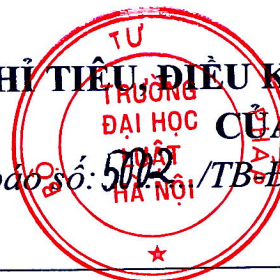 HỈ TIÊU, ĐIỀU K
CỦA
báo số: 5002/TB-Đ
BỘ TƯ PHÁP
TRƯỜNG
ĐẠI HỌC
LUẬT
HÀ NỘI